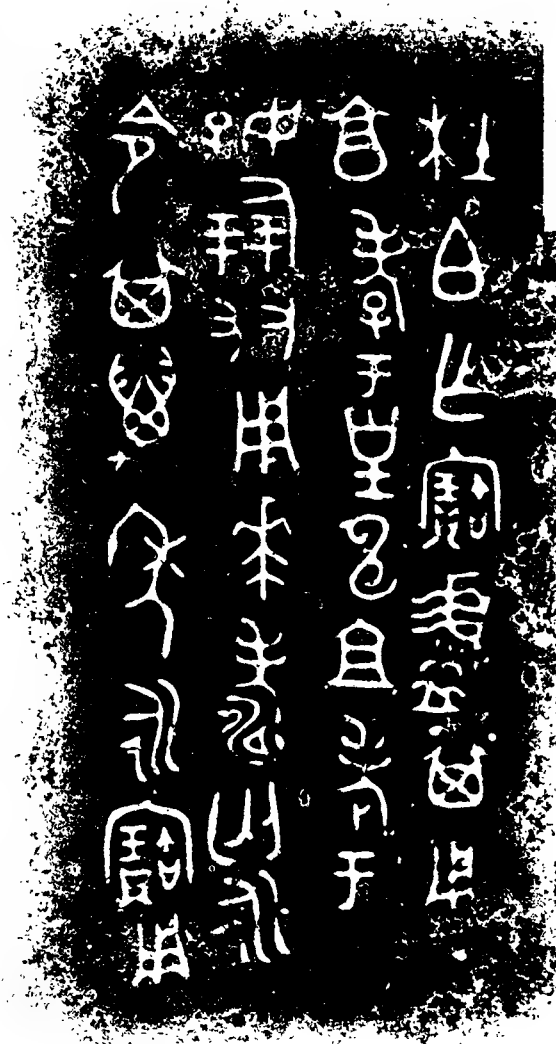 杜白乍寶盨其用
亯孝于皇申且考于
好倗友用𠦪壽匃永
令其萬年永寶用